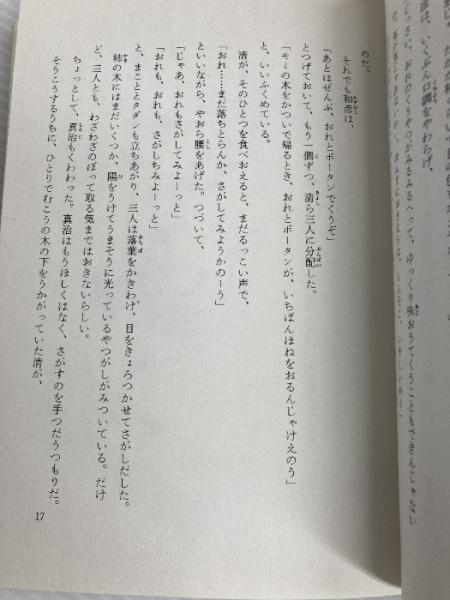 のだ。
それでも和彦は、
「あとはぜんぶ、おれとボータンでくうぞ」
とつげておいて、もう一個ずつ、清ら三人に分配した。
「モミの木をかついで帰るとき、おれとボータンが、いちばんほねをおるんじゃけえのう」
と、いいふくめている。
清が、そのひとつを食べおえると、まだるっこい声で、
「おれ……まだ落ちとらんか、さがしてみようかのーう」
といいながら、やおら腰をあげた。つづいて、
「じゃあ、おれもさがしてみよーっと」
「おれも、おれも、さがしちみよーっと」
と、まこととタダシも立ちあがり、三人は落葉をかきわけ、目をきょろつかせてさがしだした。
柿の木にはまだいくつか、陽をうけてうまそうに光っているやつがしがみついている。だけ
ど、三人とも、わざわざのぼって取る気まではおきないらしい。
ちょっとして、真治もくわわった。真治はもうほしくはなく、さがすのを手つだうつもりだ。
そうこうするうちに、ひとりでむこうの木の下をうかがっていた清が、
17